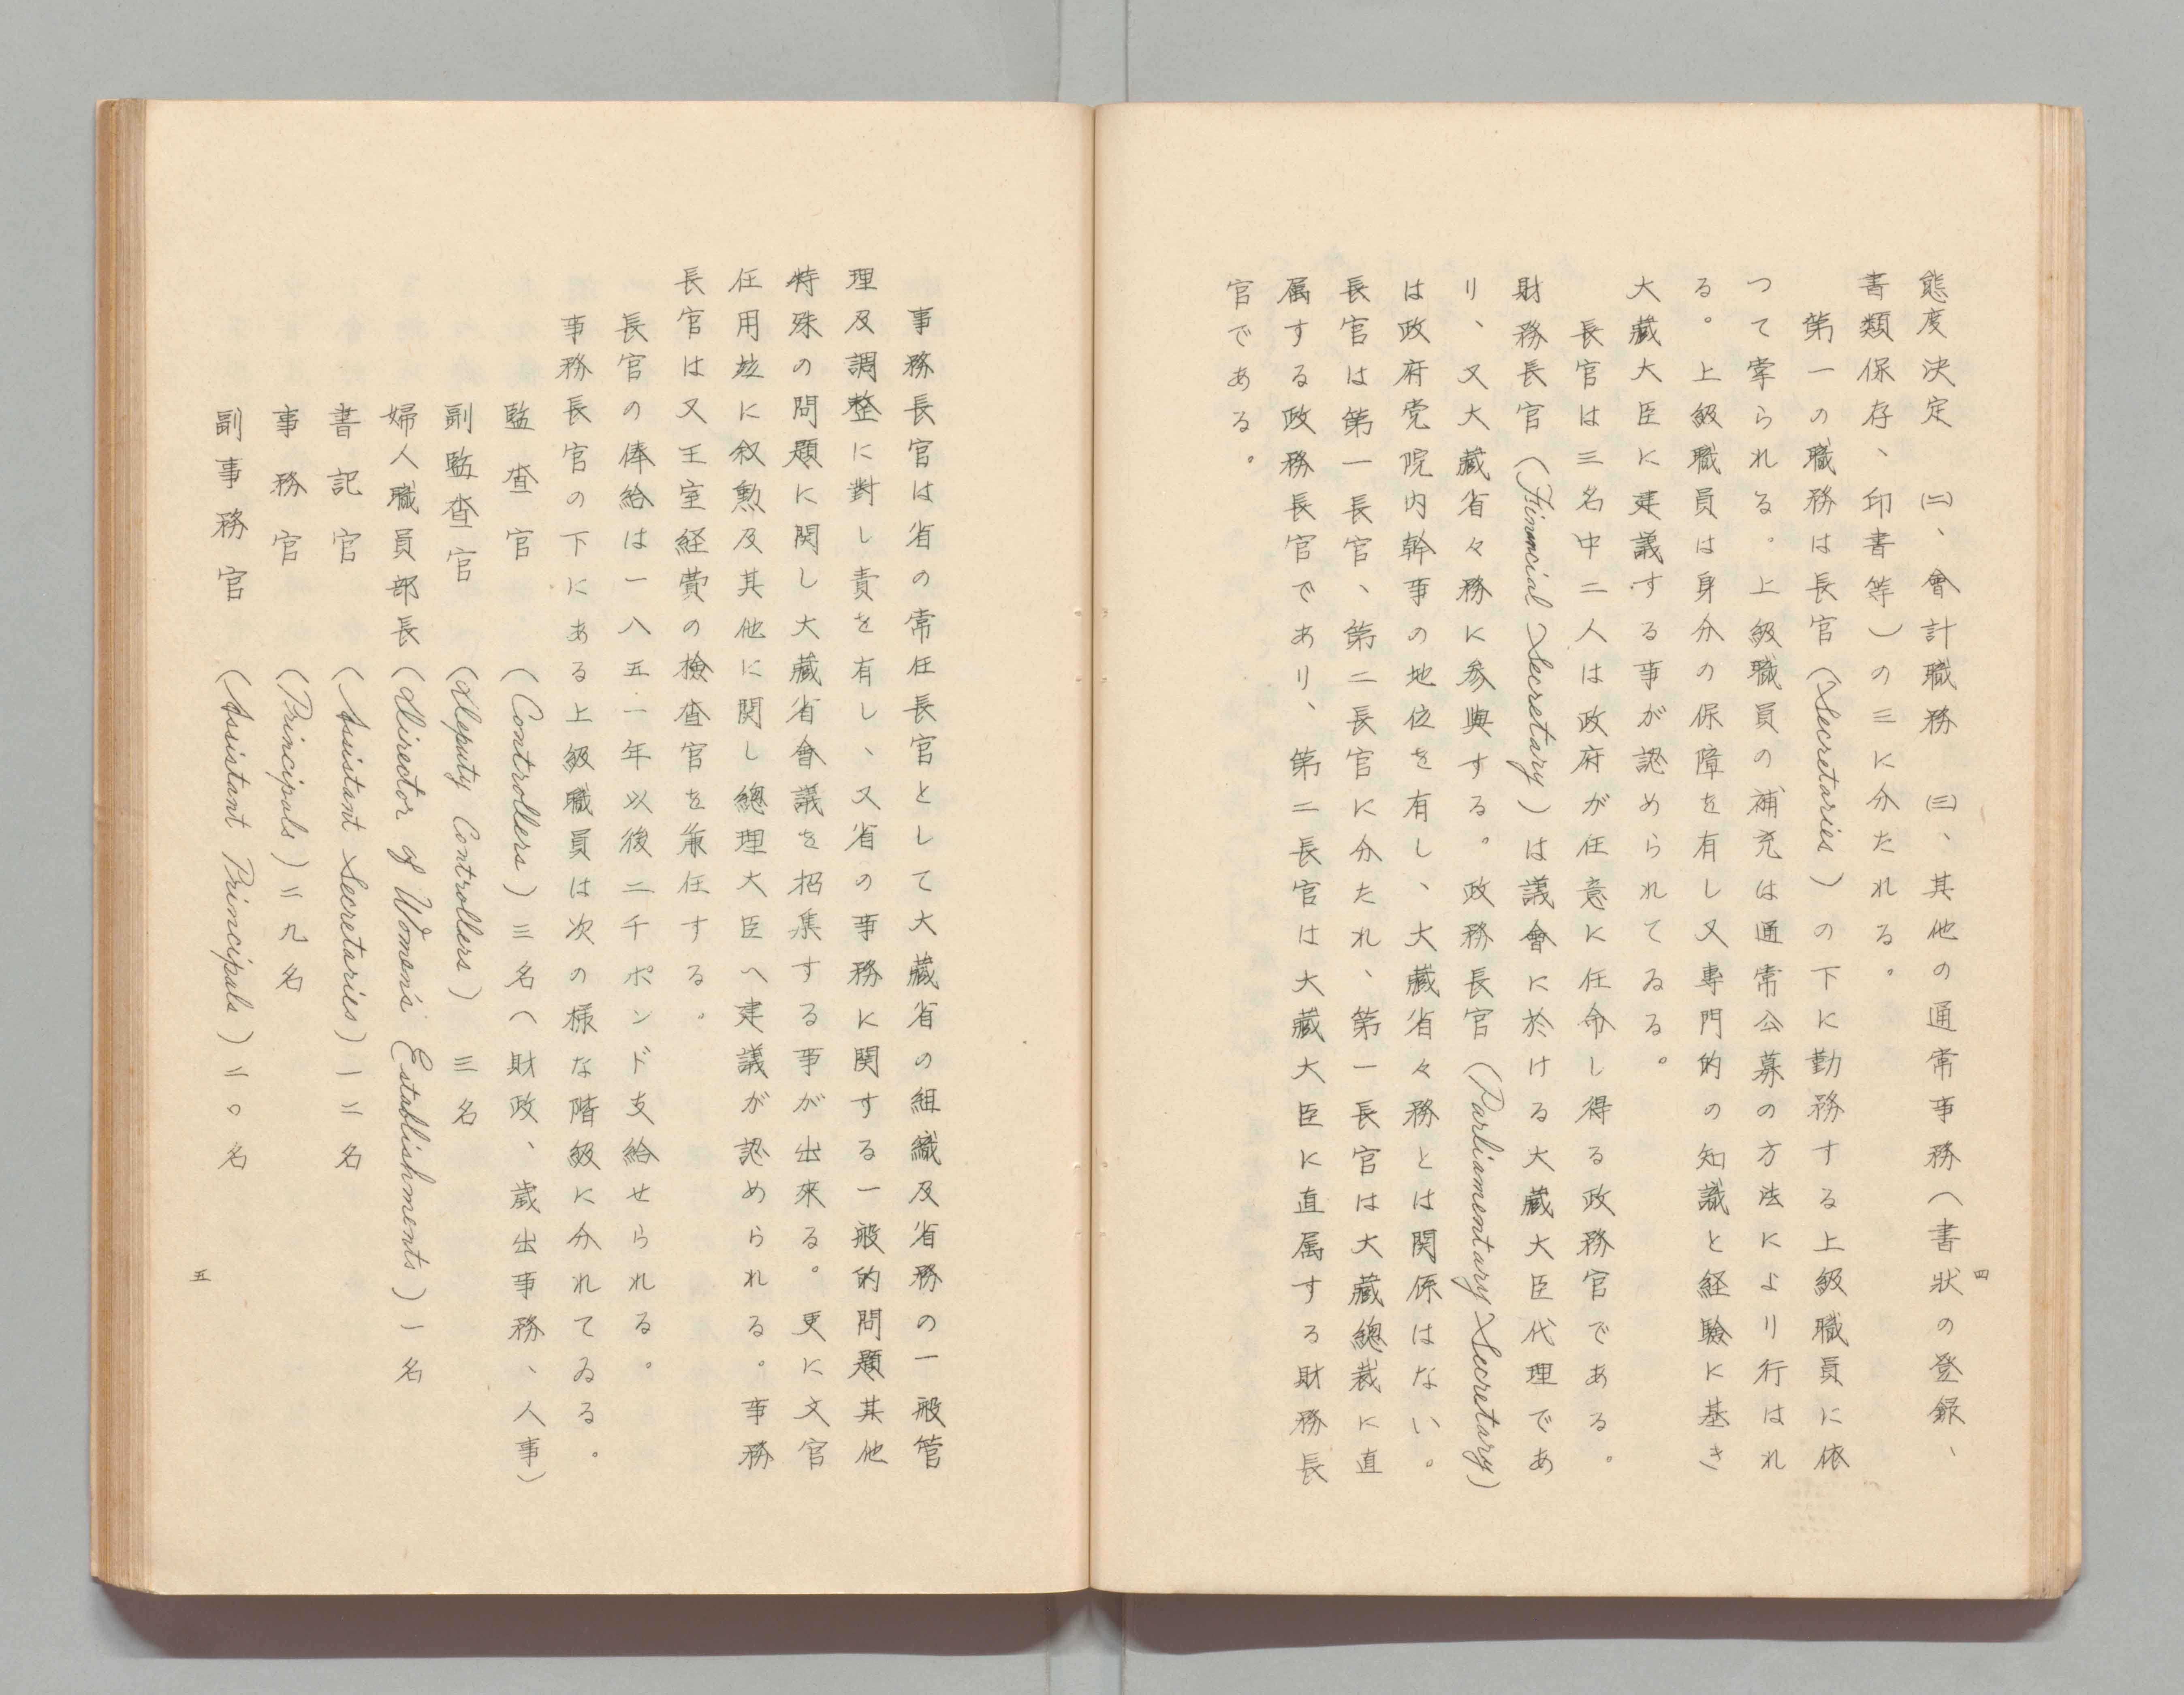 態度決定　㈡、會計職務　㈢、其他の通常事務（書狀の登録、
書類保存、印書等）の三に分たれる。
第一の職務は長官（Secretaries）の下に勤務する上級職員に依
つて掌られる。上級職員の補充は通常公募の方法により行はれ
る。上級職員は身分の保障を有し又專門的の知識と経驗に基き
大藏大臣に建議する事が認められてゐる。
長官は三名中二人は政府が任意に任命し得る政務官である。
財務長官（Financial Secretary）は議會に於ける大藏大臣代理であ
り、又大藏省々務に参與する。政務長官（Parliamentary Secretary）
は政府党院内幹事の地位を有し、大藏省々務とは関係はない。
長官は第一長官、第二長官に分たれ、第一長官は大藏總裁に直
属する政務長官であり、第二長官は大藏大臣に直属する財務長
官である。
四
事務長官は省の常任長官として大藏省の組織及省務の一般管
理及調整に對し責を有し、又省の事務に関する一般的問題其他
特殊の問題に関し大藏省會議を招集する事が出來る。更に文官
任用竝に叙勲及其他に関し總理大臣へ建議が認められる。事務
長官は又王室経費の檢査官を兼任する。
長官の俸給は一八五一年以後二千ポンド支給せられる。
事務長官の下にある上級職員は次の様な階級に分れてゐる。
監査官　（Controllers）三名（財政、歳出事務、人事）
副監査官　（deputy Controllers）三名
婦人職員部長（director of Women's Establishments）一名
書記官　（Assistant Secretaries）一二名
事務官　（Principals）二九名
副事務官　（Assistant Principals）二〇名
五